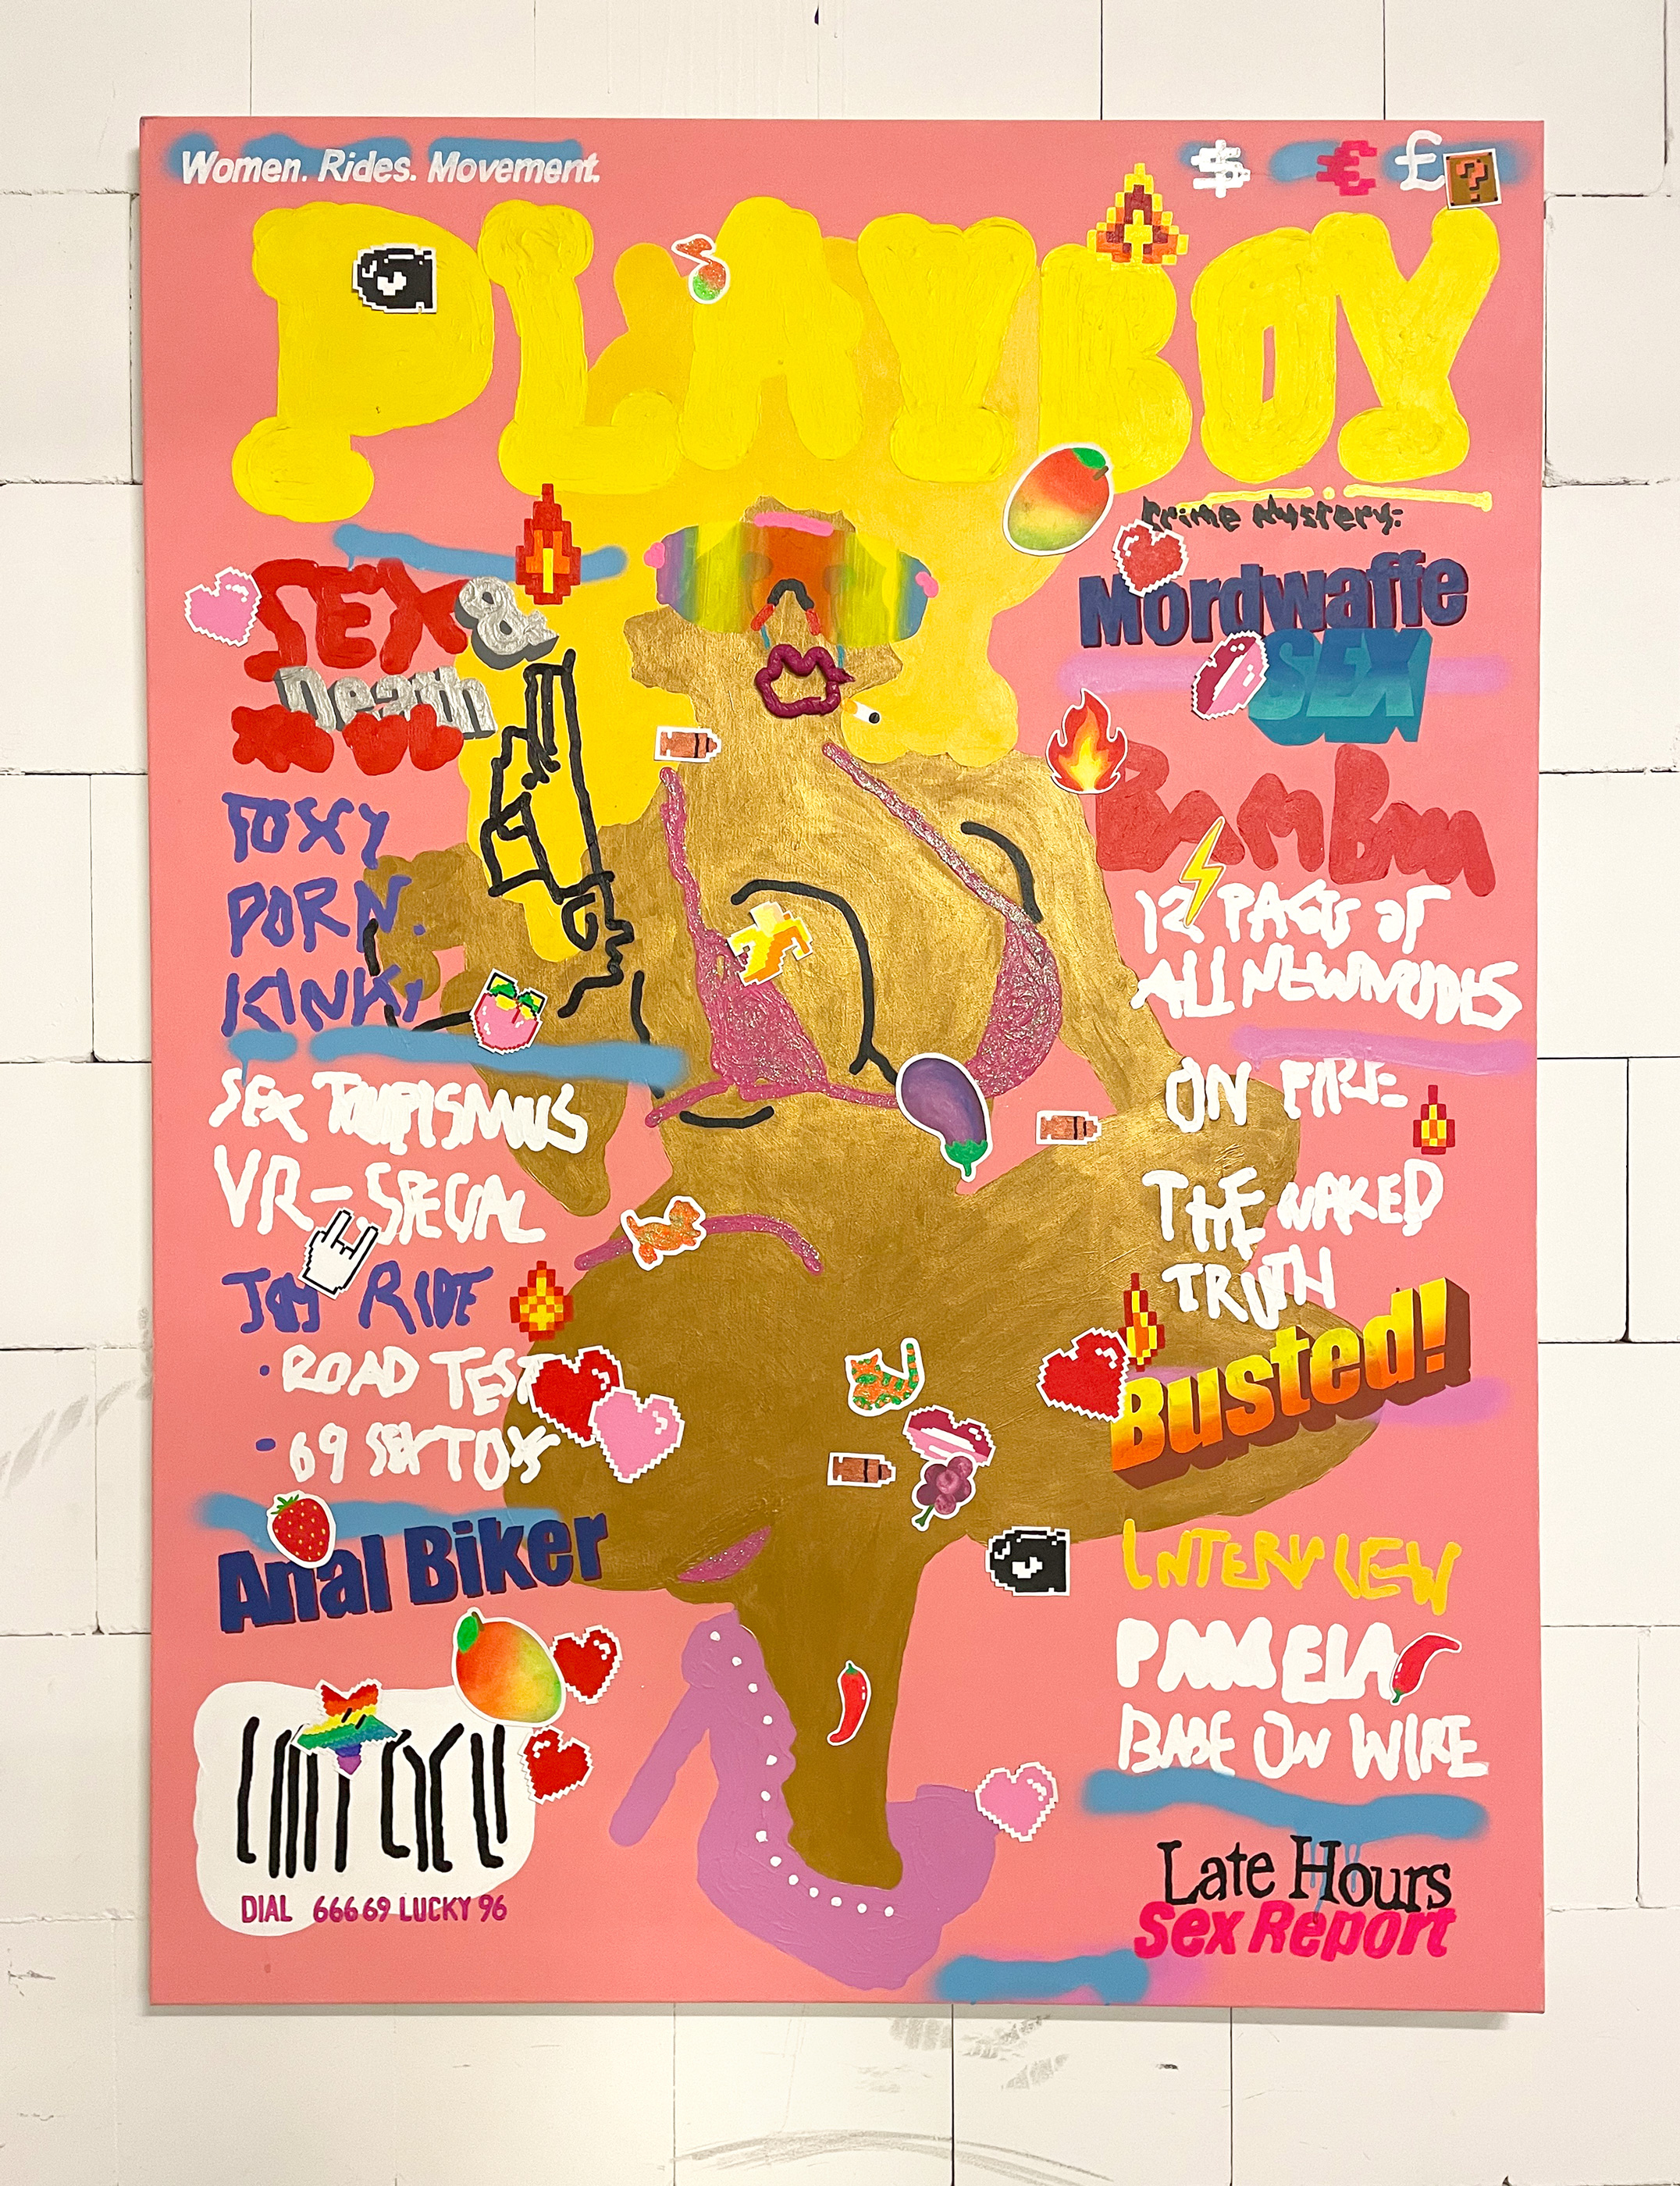 Women. Rides. Movement.
$ € £ ?
PLAYBOY
Crime Mystery:
SEX &
Death
FOXY
PORN.
KINKY
SEX TOURISMUS
VR-SPECIAL
JOY RIDE
• ROAD TEST
• 69 SEXTOYS
Anal Biker
DIAL 66669 LUCKY 96
Mordwaffe
SEX
BamBam
12 PAGES OF
ALL NEW NUDES
ON FIRE
THE NAKED
TRUTH
Busted!
INTERVIEW
PAMELA
BABE ON WIRE
Late Hours
Sex Report